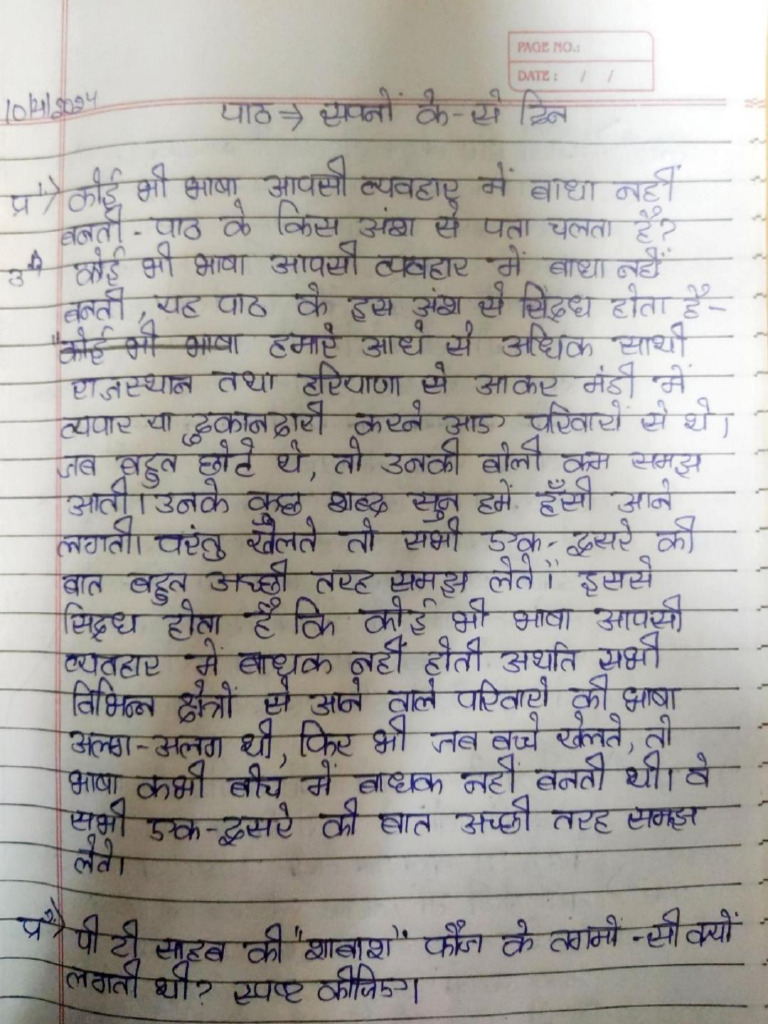 PAGE NO.:
DATE: / /
10/4/2024
पाठ → सपनों के-से दिन
प्र१→ कोई भी भाषा आपसी व्यवहार में बाधा नहीं
बनती - पाठ के किस अंश से पता चलता है?
उ० कोई भी भाषा आपसी व्यवहार में बाधा नहीं
बनती, यह पाठ के इस अंश से सिद्ध होता है-
"कोई भी भाषा हमारे आधे से अधिक साथी
राजस्थान तथा हरियाणा से आकर मंडी में
व्यपार या दुकानदारी करने आए परिवारों से थे।
जब बहुत छोटे थे, तो उनकी बोली कम समझ
आती। उनके कुछ शब्द सुन हमें हँसी आने
लगती। परंतु खेलते तो सभी एक-दुसरे की
बात बहुत अच्छी तरह समझ लेते।" इससे
सिद्ध होता है कि कोई भी भाषा आपसी
व्यवहार में बाधक नहीं होती अर्थात सभी
विभिन्न क्षेत्रों से आने वाले परिवारो की भाषा
अलग-अलग थी, फिर भी जब बच्चे खेलते, तो
भाषा कभी बीच में बाधक नहीं बनती थी। वे
सभी एक-दुसरे की बात अच्छी तरह समझ
लेते।
प्र२→ पी टी साहब की "शाबाश" फौज के तगमों-सी क्यों
लगती थी? स्पष्ट कीजिए।